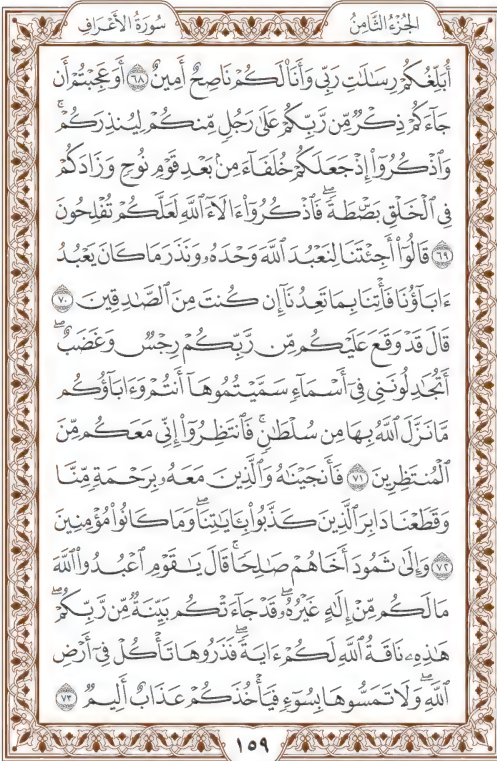 الجُزْءُ الثَّامِنُ سُورَةُ الأَعْرَافِ
أُبَلِّغُكُمْ رِسَٰلَٰتِ رَبِّى وَأَنَا۠ لَكُمْ نَاصِحٌ أَمِينٌ ٦٨ أَوَعَجِبْتُمْ أَن
جَآءَكُمْ ذِكْرٌ مِّن رَّبِّكُمْ عَلَىٰ رَجُلٍ مِّنكُمْ لِيُنذِرَكُمْ ۚ
وَٱذْكُرُوٓا۟ إِذْ جَعَلَكُمْ خُلَفَآءَ مِنۢ بَعْدِ قَوْمِ نُوحٍ وَزَادَكُمْ
فِى ٱلْخَلْقِ بَصْۜطَةً ۖ فَٱذْكُرُوٓا۟ ءَالَآءَ ٱللَّهِ لَعَلَّكُمْ تُفْلِحُونَ
٦٩ قَالُوٓا۟ أَجِئْتَنَا لِنَعْبُدَ ٱللَّهَ وَحْدَهُۥ وَنَذَرَ مَا كَانَ يَعْبُدُ
ءَابَآؤُنَا فَأْتِنَا بِمَا تَعِدُنَآ إِن كُنتَ مِنَ ٱلصَّٰدِقِينَ ٧٠
قَالَ قَدْ وَقَعَ عَلَيْكُم مِّن رَّبِّكُمْ رِجْسٌ وَغَضَبٌ ۖ
أَتُجَٰدِلُونَنِى فِىٓ أَسْمَآءٍ سَمَّيْتُمُوهَآ أَنتُمْ وَءَابَآؤُكُم
مَّا نَزَّلَ ٱللَّهُ بِهَا مِن سُلْطَٰنٍ ۚ فَٱنتَظِرُوٓا۟ إِنِّى مَعَكُم مِّنَ
ٱلْمُنتَظِرِينَ ٧١ فَأَنجَيْنَٰهُ وَٱلَّذِينَ مَعَهُۥ بِرَحْمَةٍ مِّنَّا
وَقَطَعْنَا دَابِرَ ٱلَّذِينَ كَذَّبُوا۟ بِـَٔايَٰتِنَا ۖ وَمَا كَانُوا۟ مُؤْمِنِينَ
٧٢ وَإِلَىٰ ثَمُودَ أَخَاهُمْ صَٰلِحًا ۗ قَالَ يَٰقَوْمِ ٱعْبُدُوا۟ ٱللَّهَ
مَا لَكُم مِّنْ إِلَٰهٍ غَيْرُهُۥ ۖ قَدْ جَآءَتْكُم بَيِّنَةٌ مِّن رَّبِّكُمْ ۖ
هَٰذِهِۦ نَاقَةُ ٱللَّهِ لَكُمْ ءَايَةً ۖ فَذَرُوهَا تَأْكُلْ فِىٓ أَرْضِ
ٱللَّهِ ۖ وَلَا تَمَسُّوهَا بِسُوٓءٍ فَيَأْخُذَكُمْ عَذَابٌ أَلِيمٌ ٧٣
١٥٩